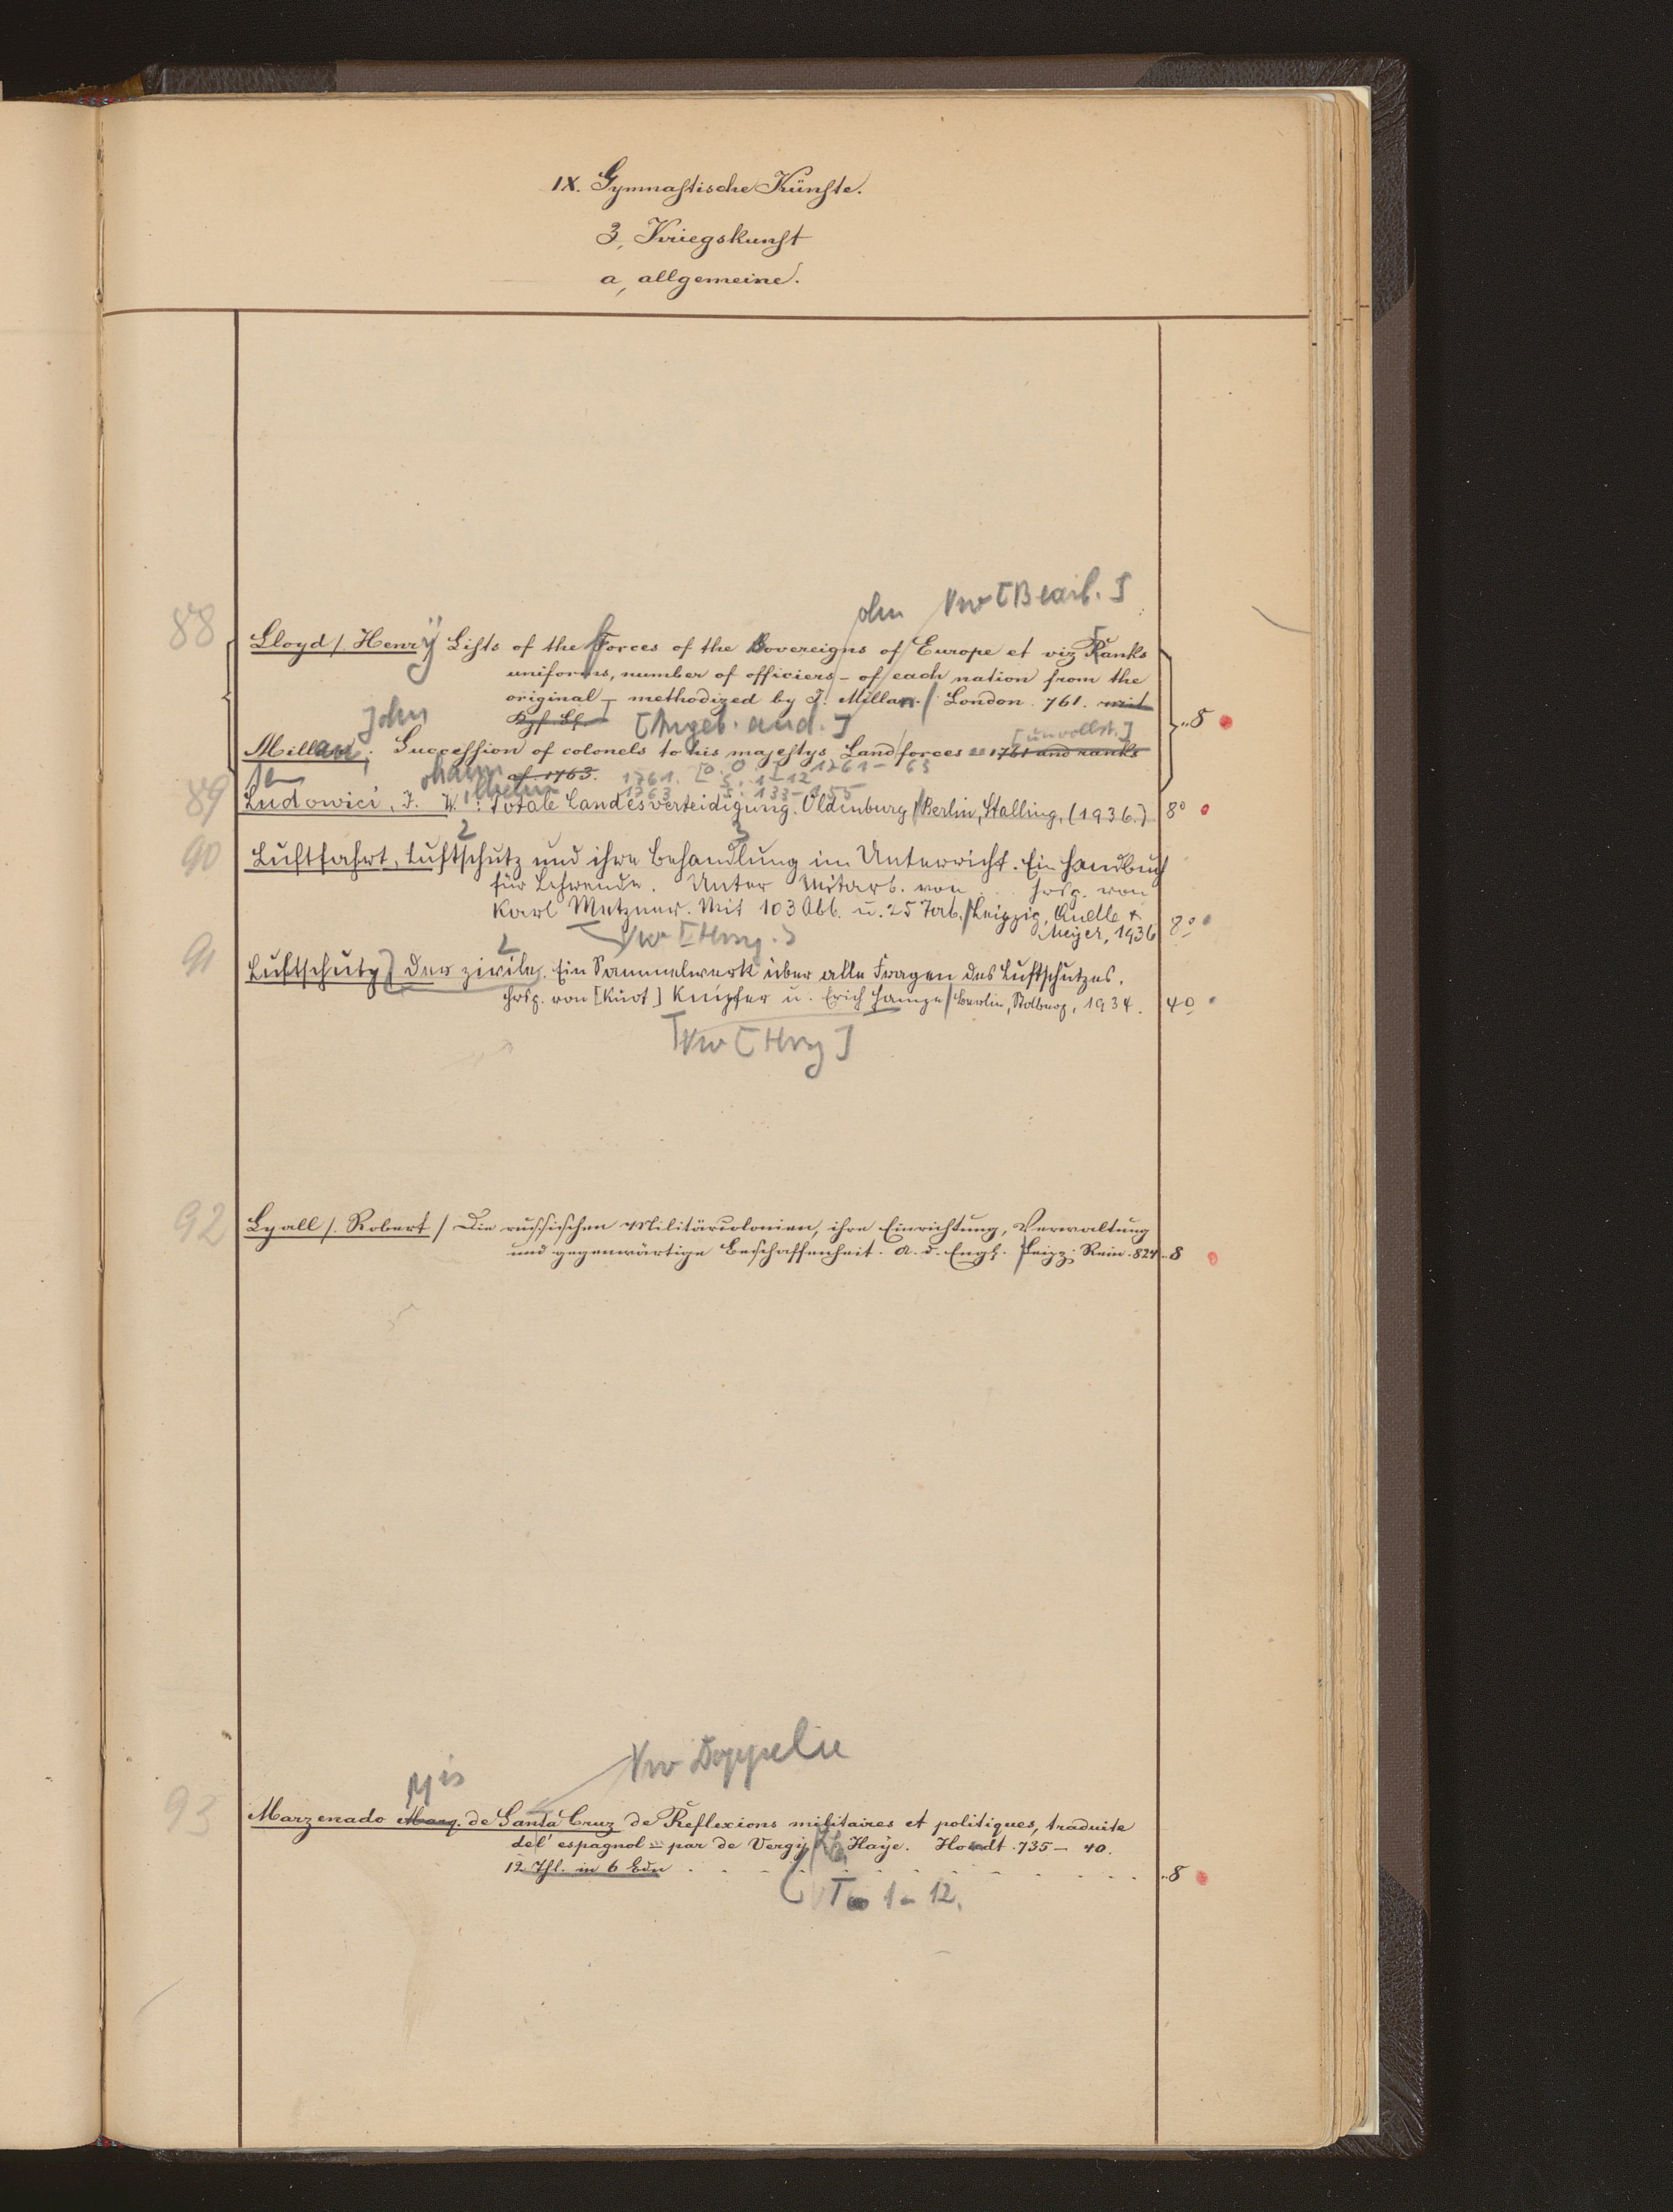 IX. Gymnastische Künste.
3, Kriegskunst
a, allgemeine.
ohn Vw [Bearb.]
88 Lloyd /. Henry Lists of the Forces of the Sovereigns of Europe et viz Ranks
uniforms, number of officiers - of each nation from the
original - methodized by J. Millan. / London. 761. mit
John [Angeb. and.]
[unvollst.]
Millan; Succession of colonels to his majestys Land forces 1761 and ranks ..8
of 1763. 1761. 1761-63
1763 S. 133-155
ohann ilhelm
89 Ludowici, J. W.: Totale Landesverteidigung. Oldenburg / Berlin, Stalling, (1936.) 8°
2 3
90 Luftfahrt, Luftschutz und ihre Behandlung im Unterricht. Ein Handbuch
für Lehrende. Unter Mitarb. von ... hrsg. von
Karl Metzner. Mit 103 Abb. u. 25 Tab. / Leipzig, Quelle &
Meyer, 1936 8°
Vw [Hrsg.]
2
91 Luftschutz, der zivile. Ein Sammelwerk über alle Fragen des Luftschutzes.
Hrsg. von [Kurt] Knipfer u. Erich Hampe / Berlin, Stollberg, 1934. 4°
Vw [Hrsg]
92 Lyall /. Robert / Die russischen Militärcolonien, ihre Einrichtung, Verwaltung
und gegenwärtige Beschaffenheit. A. d. Engl. / Leipz. Rein. 824 ..8
Vw Doppelie
Mis
93 Marzenado Marq. de Santa Cruz de Reflexions militaires et politiques, traduite
del' espagnol par de Vergy / La Haye. Hondt. 735-40.
12. Thl. in 6 Bdn ..8
T 1-12.